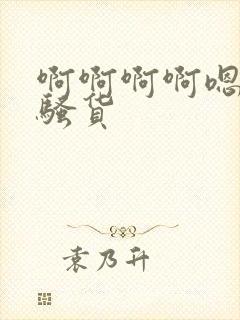 啊啊啊啊嗯
骚货
袁乃升